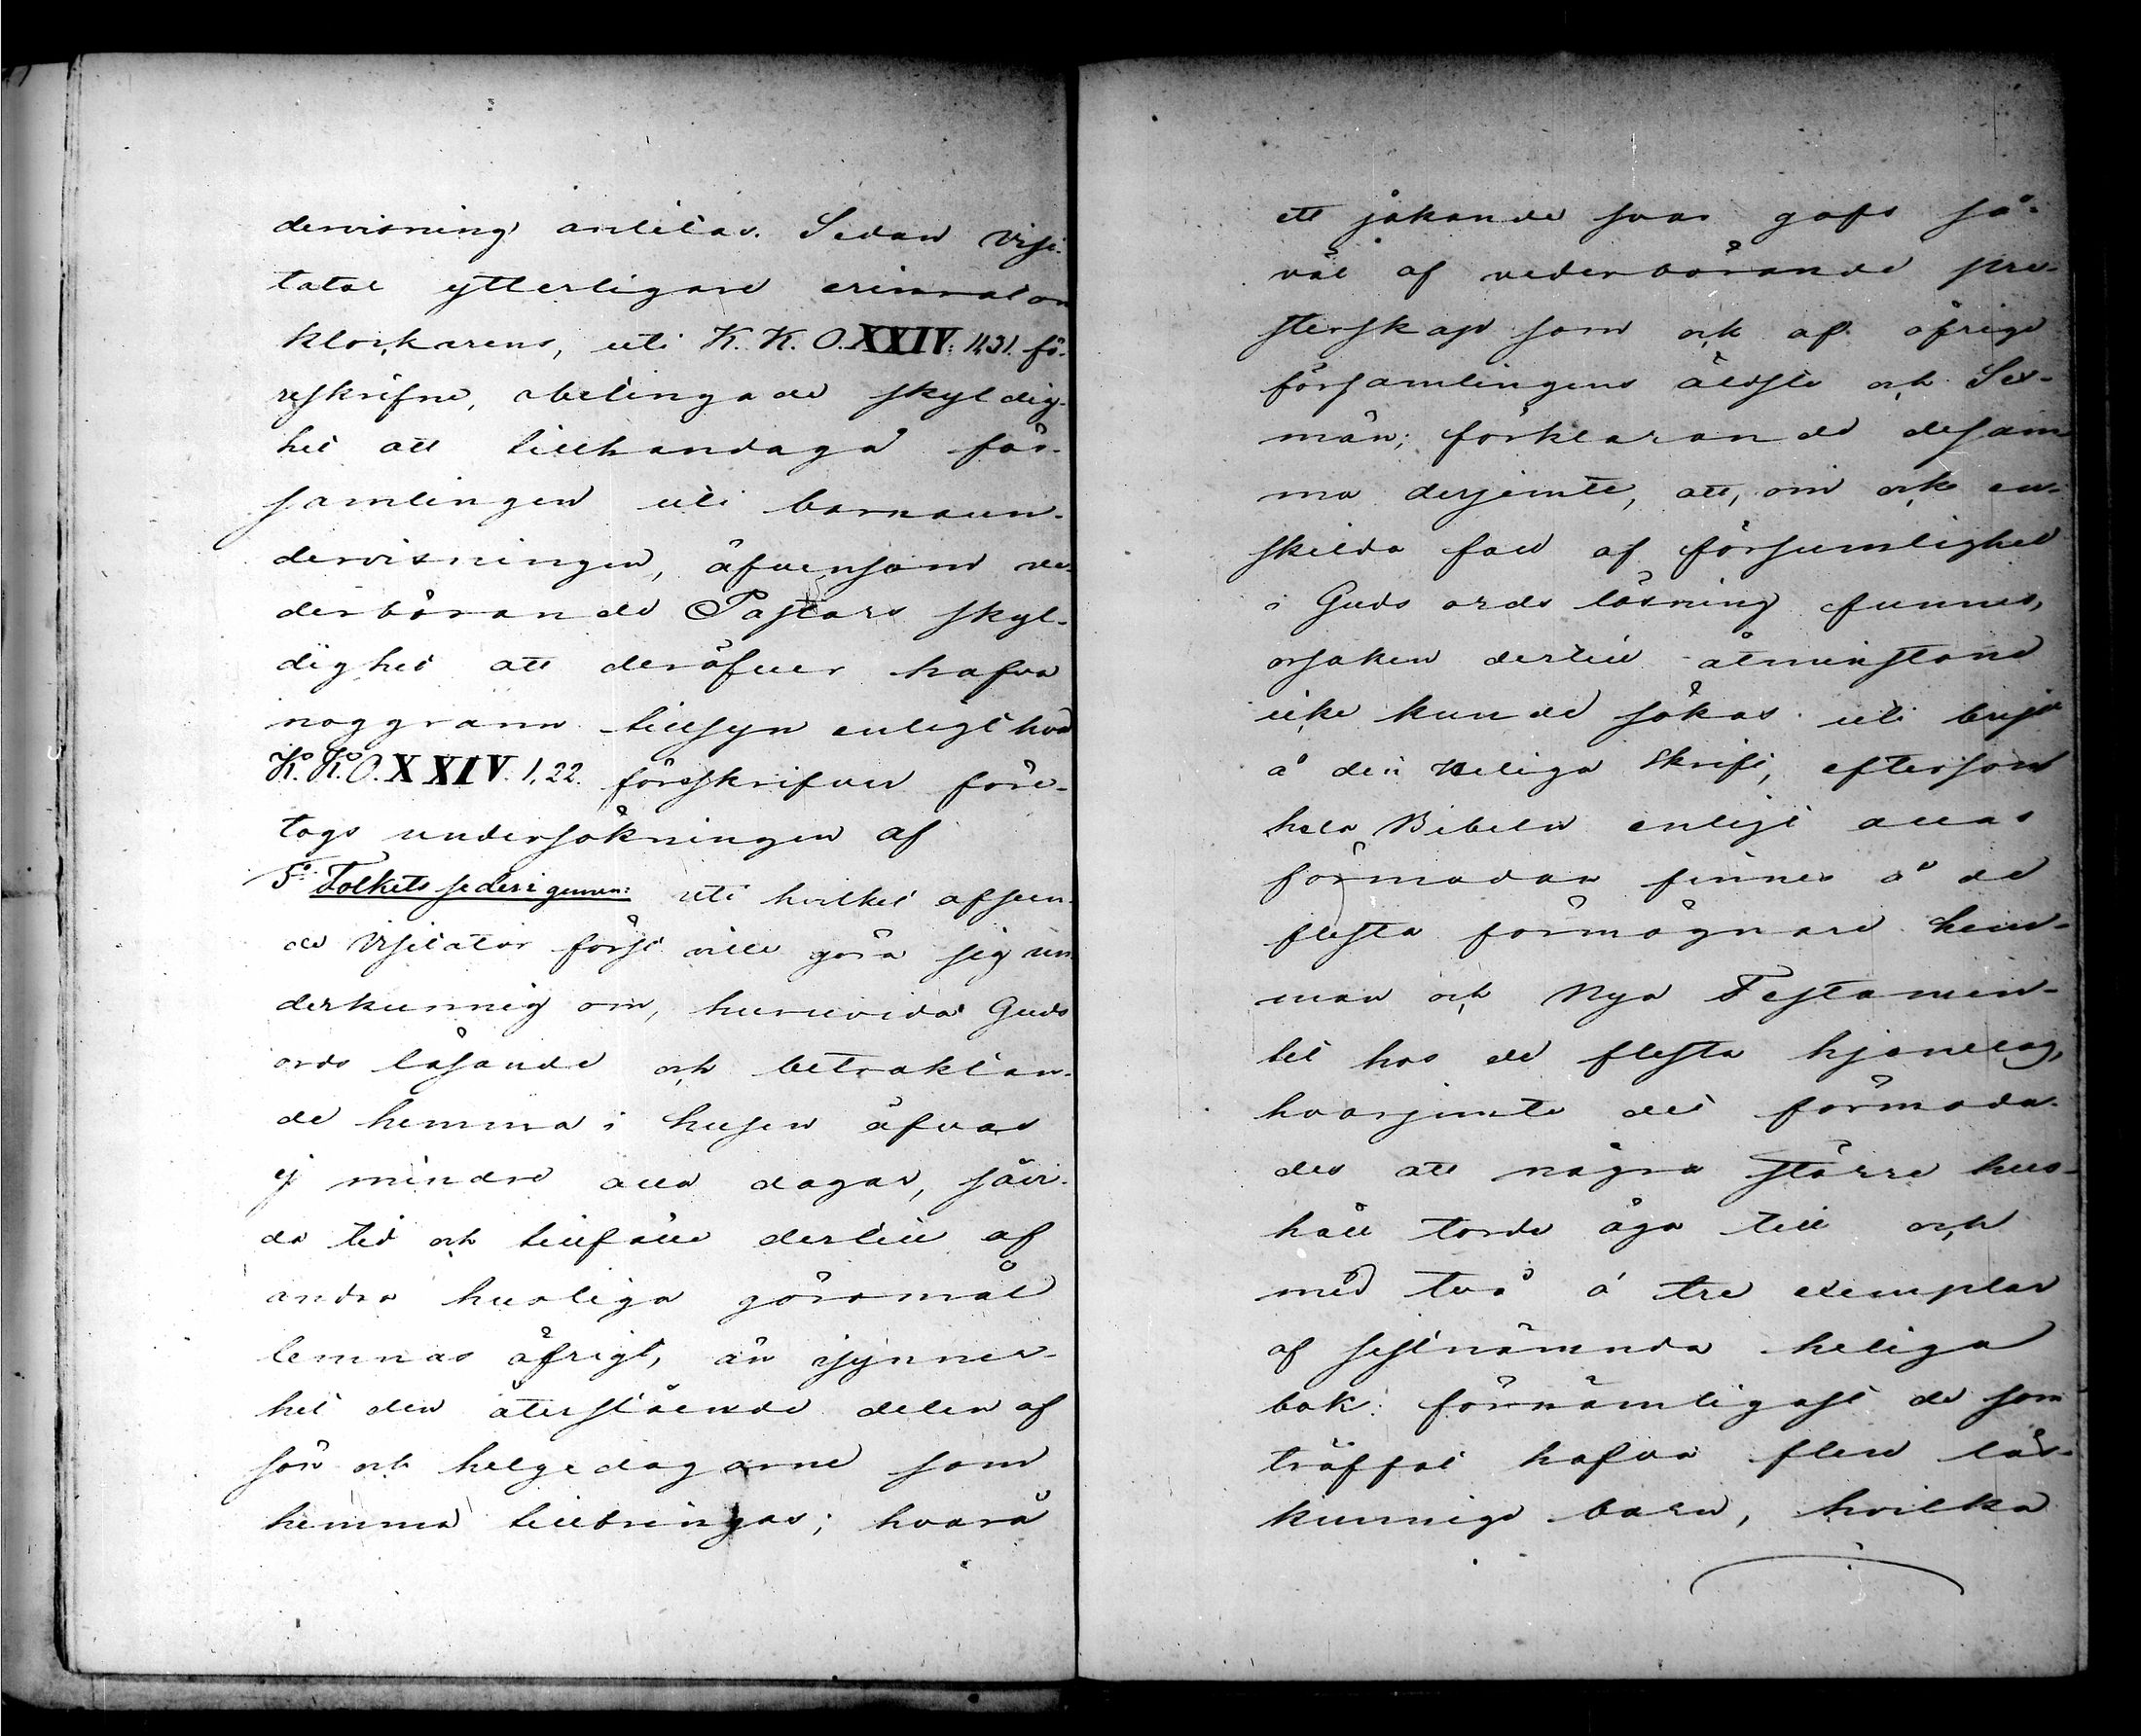 dervisning anlitas. Sedan Visi-
tator ytterligare erinrat om
klockarens, uti K. K. O. XXIV: 11,31. fö-
reskrifne, obetingade skyldig-
het att tillhandagå för-
samlingen uti barnaun-
dervisningen, äfvensom ve-
derbörande Pastors skyl-
dighet att deröfver hafva
noggrann tillsyn enligt hvad
K. K. O. XXIV. 1,22. föreskrifver före-
togs undersökningen af
5o Folkets seder i gemen: uti hvilket afseen-
de Visitator först ville göra sig un-
derkunnig om, huruvida Guds
ords läsande och betraktan-
de hemma i husen öfvas
ej mindre alla dagar, där
tid och tillfälle dertill af
andra husliga göromål
lemnas öfrigt, än synner-
het den återstående delen af
sön och helgedagarne som
hemma tillbringas; hvarå
ett jakande svar gafs så-
väl af vederbörande pre-
sterskap som ock af öfrige
församlingens äldste och Sex-
män; förklarande desam-
ma derjemte, att, om ock en-
skilda fall af försumlighet
i Guds ords läsning funnes,
orsaken dertill åtminstone
icke kunde sökas uti brist
å den Heliga Skrift, eftersom
hela Bibeln enligt allas
förmodan finnes å de
flesta förmögnare hem-
man och Nya Testamen-
tet hos de flesta hjonelag,
hvarjemte det förmoda-
des att några större hus-
håll torde äga till och
med två à tre exemplar
af sistnämnda heliga
bok: förnämligast de som
träffat hafva flere läs-
kunnige barn, hvilka